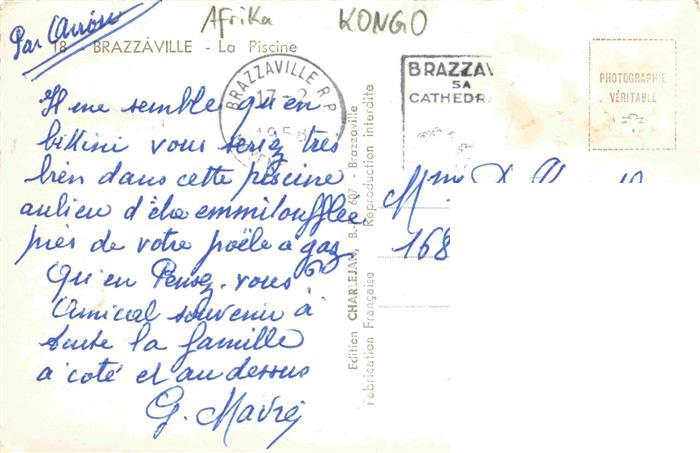 Afrika KONGO
Par Avion
18 - BRAZZAVILLE - La Piscine
BRAZZAVILLE R.P.
17-2
1958
BRAZZAV
SA
CATHEDR
PHOTOGRAPHIE
VÉRITABLE
Il me semble qu'en
bikini vous seriez très
bien dans cette piscine
aulieu d'être emmitoufflée
près de votre poële a gaz
Qu'en Pensez-vous
Amical souvenir à
toute la famille
a coté et au dessus
G.
Edition CHARLEJAN, B. 607 - Brazzaville
Fabrication Française Reproduction Interdite
Mme
168